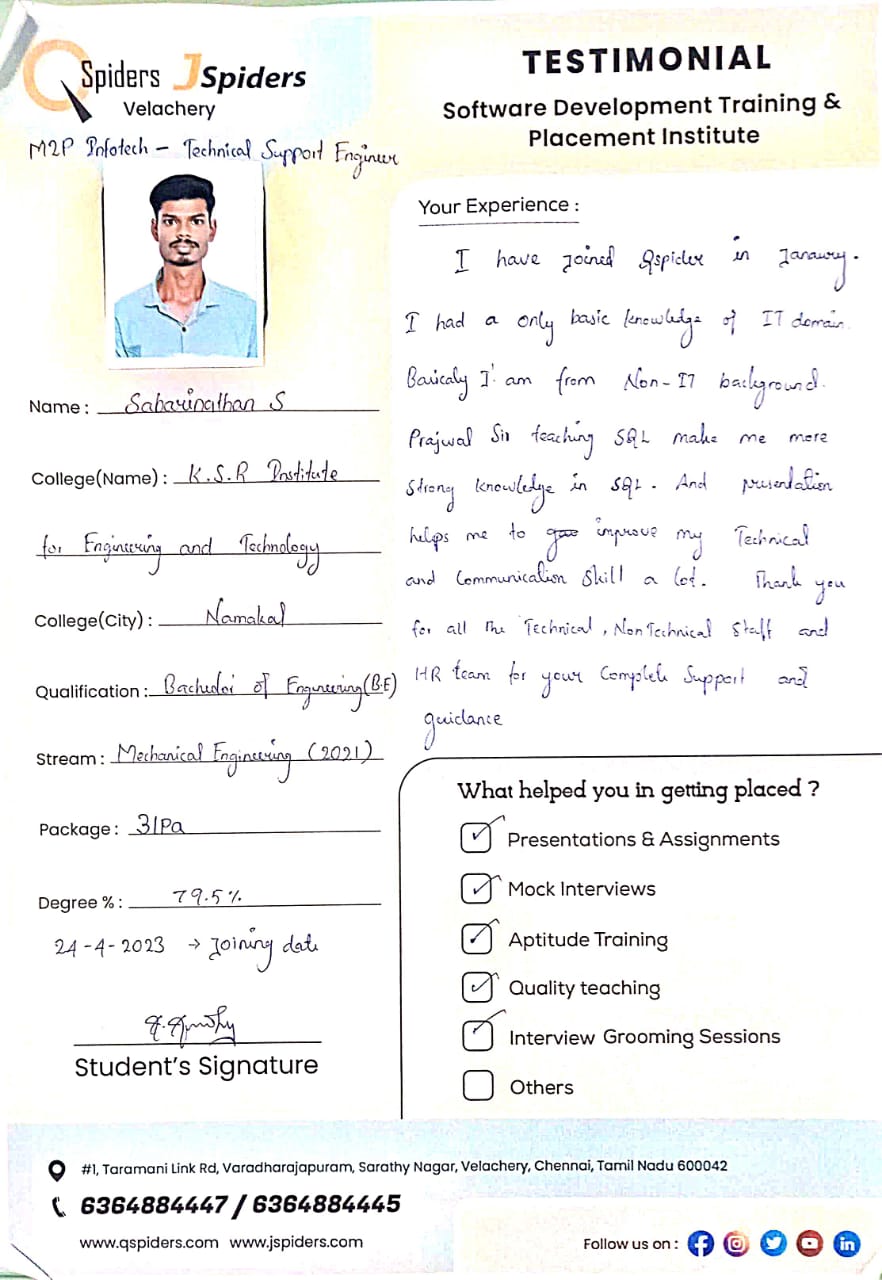 QSpiders JSpiders
Velachery
M2P Infotech - Technical Support Engineer
Name : Sabarinathan S
College(Name) : K.S.R Institute
for Engineering and Technology
College(City) : Namakal
Qualification : Bachelor of Engineering (B.E)
Stream : Mechanical Engineering (2021)
Package : 3lPa
Degree % : 79.5%
24-4-2023 → Joining date
Student's Signature
TESTIMONIAL
Software Development Training &
Placement Institute
Your Experience :
I have joined Qspider in Janaury.
I had a only basic knowledge of IT domain.
Basicaly I'am from Non-IT background.
Prajwal Sir teaching SQL make me more
Strong knowledge in SQL. And presentation
helps me to improve my Technical
and Communication Skill a lot. Thank you
for all the Technical, Non Technical Staff and
HR team for your Complete Support and
guidance
What helped you in getting placed ?
Presentations & Assignments
Mock Interviews
Aptitude Training
Quality teaching
Interview Grooming Sessions
Others
#1, Taramani Link Rd, Varadharajapuram, Sarathy Nagar, Velachery, Chennai, Tamil Nadu 600042
6364884447 / 6364884445
www.qspiders.com www.jspiders.com
Follow us on :